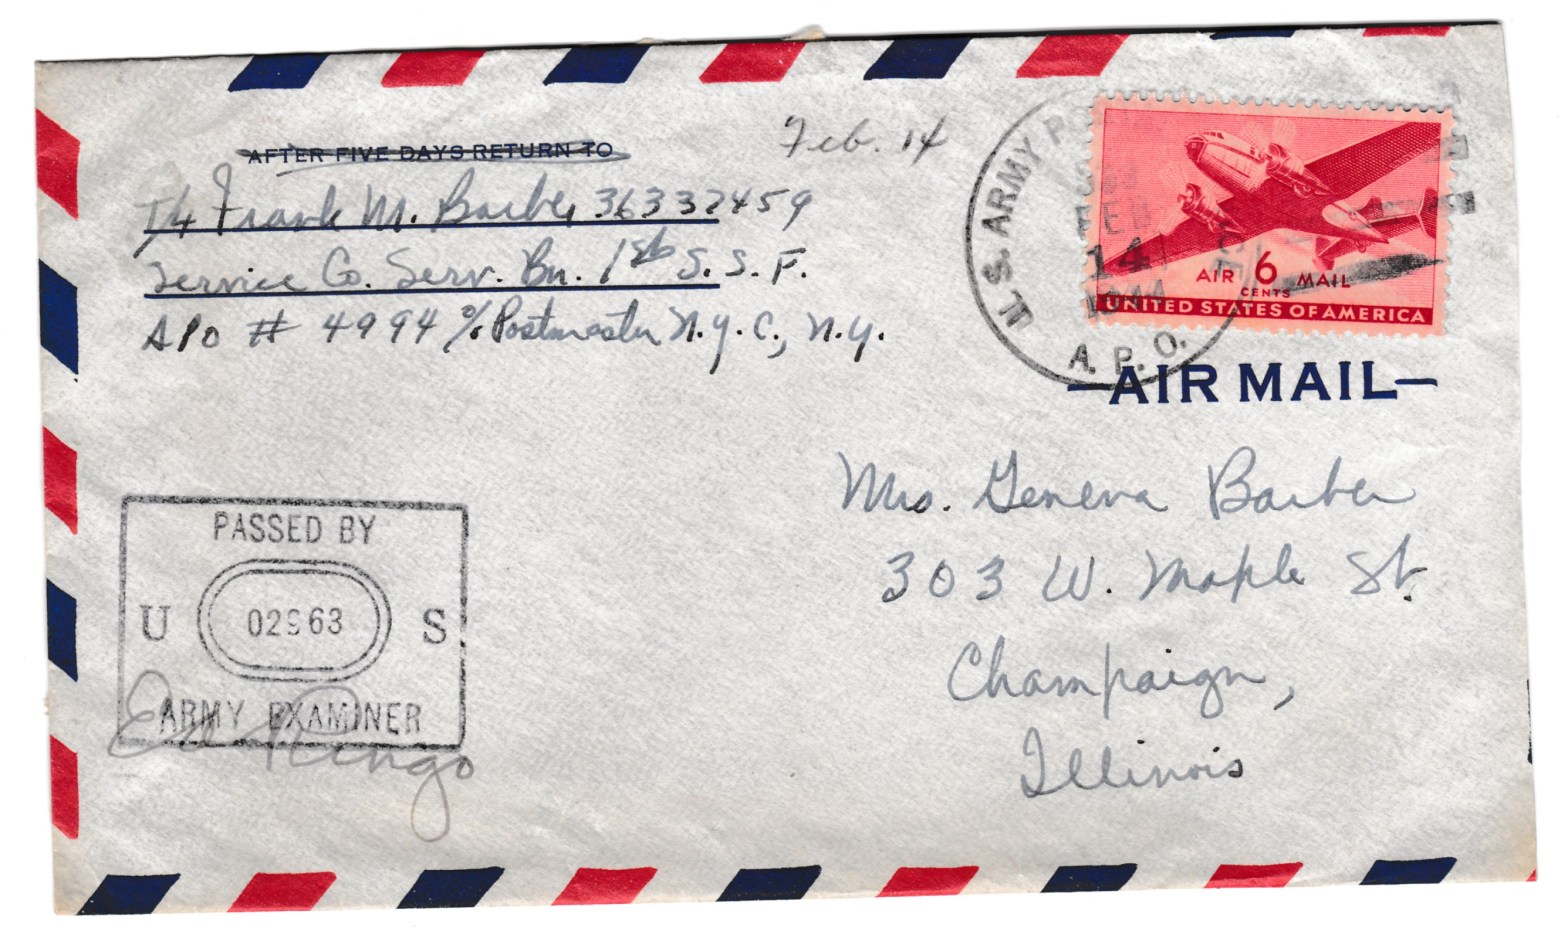 AFTER FIVE DAYS RETURN TO
Feb. 14
T/4 Frank M. Barber 36332459
Service Co. Serv. Bn. 1st S. S. F.
APO # 4994 % Postmaster N.Y.C., N.Y.
U.S. ARMY
FEB
14
1944
A.P.O.
AIR 6 MAIL
CENTS
UNITED STATES OF AMERICA
AIR MAIL
Mrs. Geneva Barber
303 W. Maple St.
Champaign,
Illinois
PASSED BY
U 02563 S
ARMY EXAMINER